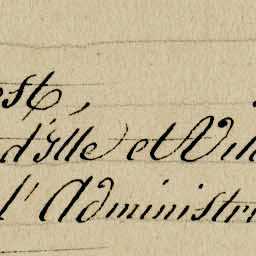 est,
d'Ille et Vil
l'Administr